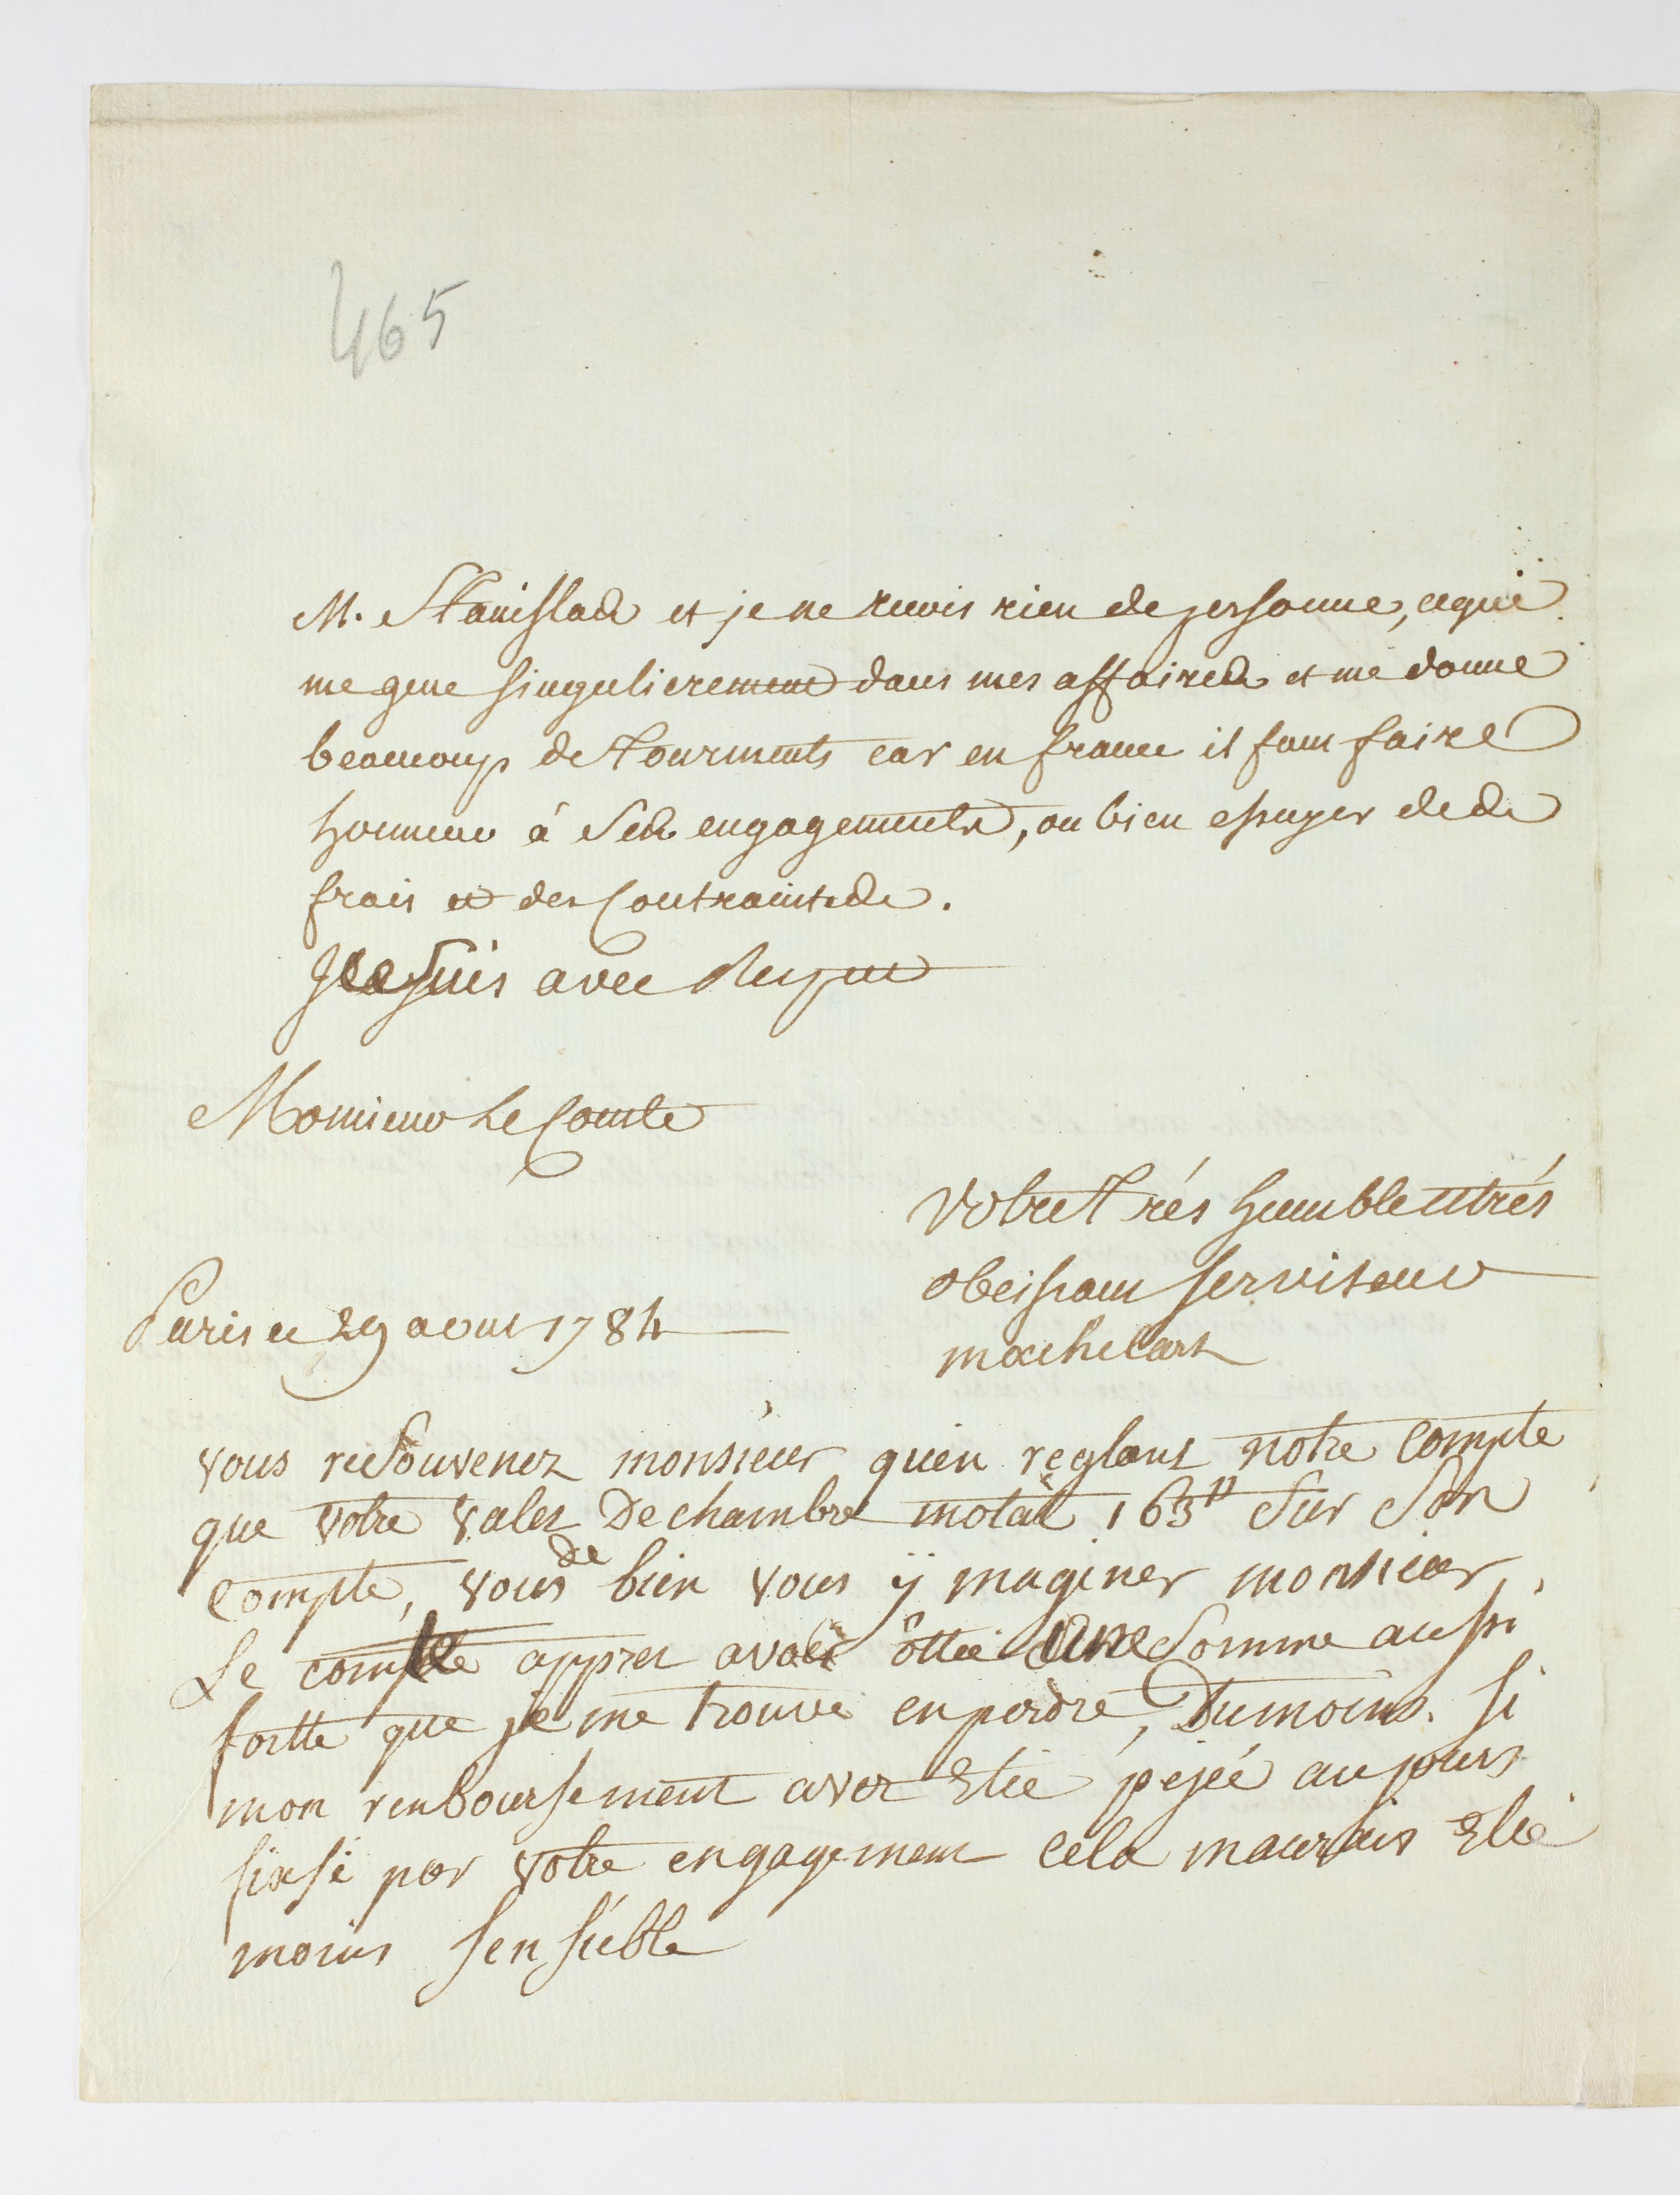 465
M. Stanislas et je ne reçois rien de personne, ce qui
me gene singulierement dans mes affaires et me donne
beaucoup de tourments car en france il faut faire
honneur à ses engagements, ou bien essuyer des
frais et des Contraintes.
Je suis avec Respect
Monsieur Le Comte
Votre trés humble et trés
obeissant serviteur
Paris ce 29 aout 1784
machelart
vous resouvenez monsieur quen reglant notre compte
que votre valez De chambre motat 163# sur son
compte, vous de bien vous ÿ maginer monsieur
Le compte apprez avoir ottée une somme aussi
fortte que je me trouve en perdre, Dumoins si
mon remboursement avoz etie pejée au jours
fixsé par votre engagement cela maurais etié
moins sensieble